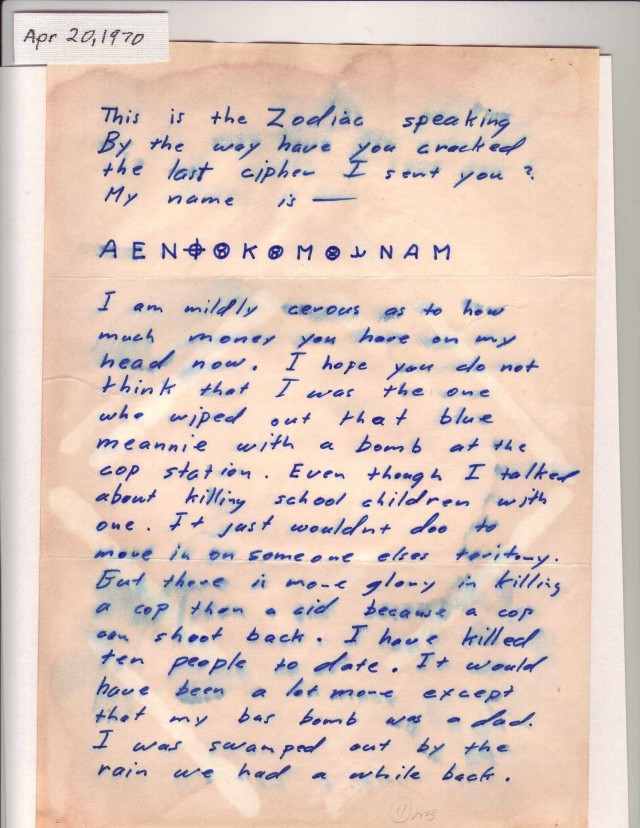 Apr 20, 1970
This is the Zodiac speaking
By the way have you cracked
the last cipher I sent you?
My name is —
A E N ⌖ ⊗ K ⊗ M ⊗ ⅄ N A M
I am mildly cerous as to how
much money you have on my
head now. I hope you do not
think that I was the one
who wiped out that blue
meannie with a bomb at the
cop station. Even though I talked
about killing school children with
one. It just wouldnt doo to
move in on someone elses teritory.
But there is more glory in killing
a cop than a cid because a cop
can shoot back. I have killed
ten people to date. It would
have been a lot more except
that my bus bomb was a dud.
I was swamped out by the
rain we had a while back.